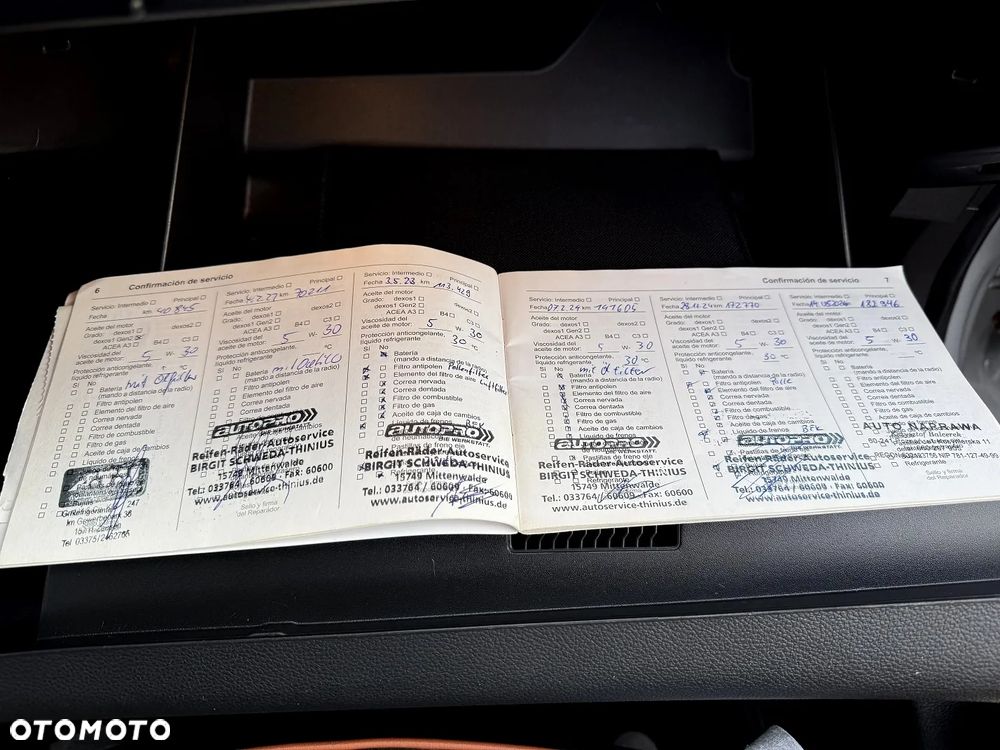 6 Confirmación de servicio
Servicio: Intermedio Principal
Fecha km 40845
Aceite del motor
Grado: dexos1 dexos2
dexos1 Gen2
ACEA A3 B4 C3
Viscosidad del
aceite de motor: 5 W- 30
Protección anticongelante,
líquido refrigerante °C
Sí No
Batería
(mando a distancia de la radio)
Filtro antipolen
Elemento del filtro de aire
Correa nervada
Correa dentada
Filtro de combustible
Filtro de gas
Aceite de caja de cambios
Tel 03375/2462765
Servicio: Intermedio Principal
Fecha km 70211
Aceite del motor
Grado: dexos1 dexos2
dexos1 Gen2
ACEA A3 B4 C3
Viscosidad del
aceite de motor: 5 W- 30
Protección anticongelante,
líquido refrigerante °C
Sí No
Batería
(mando a distancia de la radio)
Filtro antipolen
Elemento del filtro de aire
Correa nervada
Correa dentada
autoPRO
Reifen-Räder-Autoservice
BIRGIT SCHWEDA-THINIUS
15749 Mittenwalde
Tel.: 033764 / 60609 · Fax: 60600
www.autoservice-thinius.de
Sello y firma
del Reparador
Servicio: Intermedio Principal
Fecha 3.5.23 km 113.429
Aceite del motor
Grado: dexos1 dexos2
dexos1 Gen2
ACEA A3 B4 C3
Viscosidad del
aceite de motor: 5 W- 30
Protección anticongelante,
líquido refrigerante 30 °C
Sí No
Batería
(mando a distancia de la radio)
Filtro antipolen Pollenfilter
Elemento del filtro de aire Luftfilter
Correa nervada
Correa dentada
Filtro de combustible
Filtro de gas
Aceite de caja de cambios
autoPRO
DIE WERKSTATT
Reifen-Räder-Autoservice
BIRGIT SCHWEDA-THINIUS
15749 Mittenwalde
Tel.: 033764 / 60609 · Fax: 60600
www.autoservice-thinius.de
Confirmación de servicio 7
Servicio: Intermedio Principal
Fecha 07.2.24 km 141605
Aceite del motor
Grado: dexos1 dexos2
dexos1 Gen2
ACEA A3 B4 C3
Viscosidad del
aceite de motor: 5 W- 30
Protección anticongelante,
líquido refrigerante 30 °C
Sí No
Batería
(mando a distancia de la radio)
Filtro antipolen
Elemento del filtro de aire
Correa nervada
Correa dentada
Filtro de combustible
Filtro de gas
Aceite de caja de cambios
Líquido de freno
autoPRO
DIE WERKSTATT
Reifen-Räder-Autoservice
BIRGIT SCHWEDA-THINIUS
15749 Mittenwalde
Tel.: 033764 / 60609 · Fax: 60600
www.autoservice-thinius.de
Servicio: Intermedio Principal
Fecha 28.11.24 km 172770
Aceite del motor
Grado: dexos1 dexos2
dexos1 Gen2
ACEA A3 B4 C3
Viscosidad del
aceite de motor: 5 W- 30
Protección anticongelante,
líquido refrigerante 30 °C
Sí No
Batería
(mando a distancia de la radio)
Filtro antipolen
Elemento del filtro de aire
Correa nervada
Correa dentada
Filtro de combustible
Filtro de gas
Aceite de caja de cambios
Líquido de freno
autoPRO
Reifen-Räder-A
BIRGIT SCHWEDA-THINIUS
15749 Mittenwalde
Tel.: 033764 / 60609 · Fax: 60600
www.autoservice-thinius.de
Servicio: Intermedio Principal
Fecha km
Aceite del motor
Grado: dexos1 dexos2
dexos1 Gen2
ACEA A3 B4 C3
Viscosidad del
aceite de motor: 5 W- 30
Protección anticongelante,
líquido refrigerante °C
Sí No
Batería
(mando a distancia de la radio)
Filtro antipolen
Elemento del filtro de aire
Correa nervada
Correa dentada
Filtro de combustible
Filtro de gas
Aceite de caja de cambios
AUTO NAPRAWA
Refrigerante
Sello y firma
del Reparador
OTOMOTO